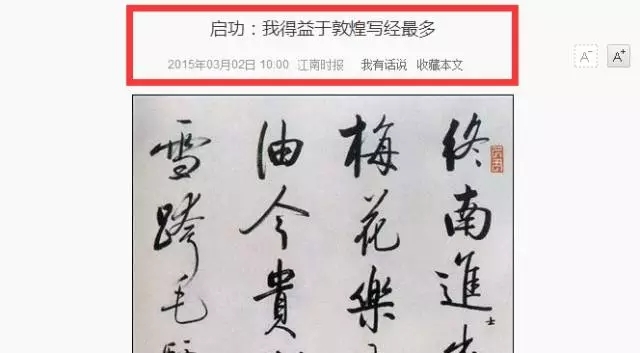 启功：我得益于敦煌写经最多
2015年03月02日 10:00 江南时报 我有话说 收藏本文
A⁻ A⁺
终南進士
梅花樂
由今貴
雪跨毛